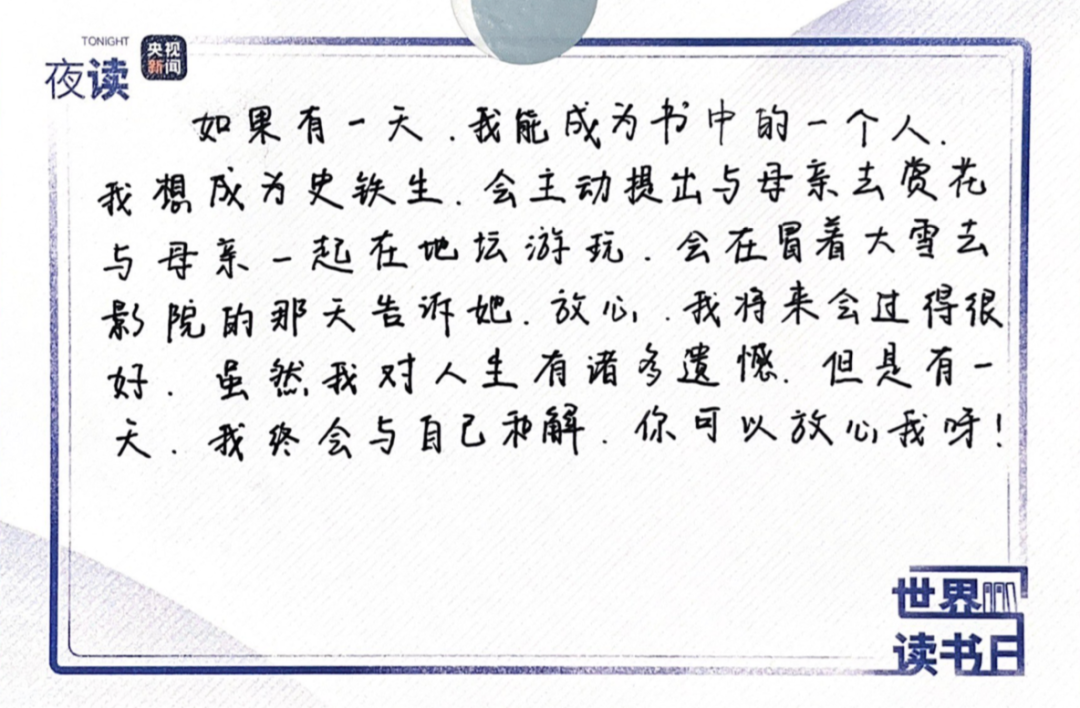 TONIGHT
夜读
央视
新闻
如果有一天.我能成为书中的一个人.
我想成为史铁生.会主动提出与母亲去赏花
与母亲一起在地坛游玩.会在冒着大雪去
影院的那天告诉她.放心.我将来会过得很
好.虽然我对人生有诸多遗憾.但是有一
天.我终会与自己和解.你可以放心我呀!
世界
读书日